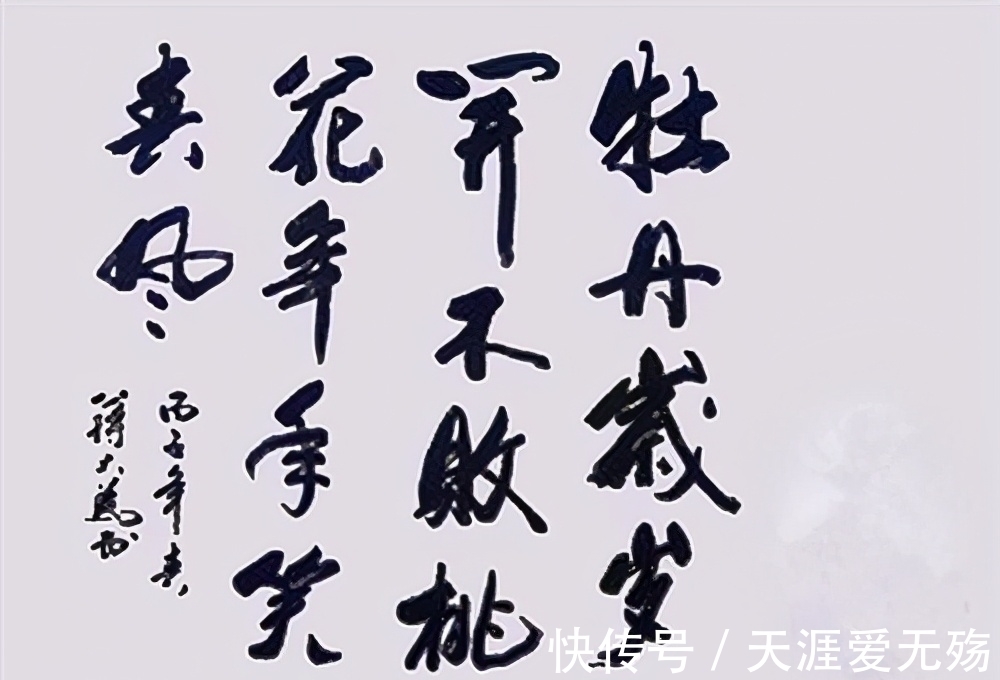 牡丹歲岁
開不敗桃
花年年笑
春风
丙子年春
蔣大為书
快传号 / 天涯爱无殇